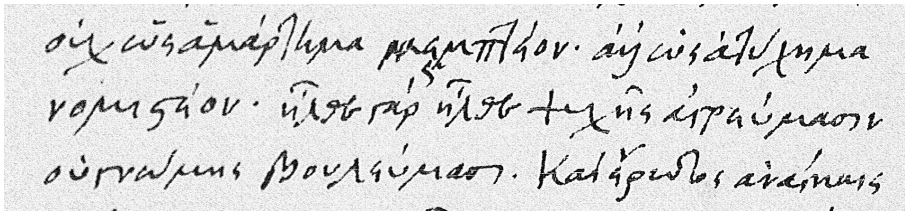 οὐχ ὡς ἁμάρτημα μεμπτέον· ἀλλ' ὡς ἀτύχημα
νομιστέον· ἦλθε γάρ ὡς ἦλθε ψυχῆς ἀγρεύμασιν
οὐ γνώμης βουλεύμασι· καὶ ἔρωτος ἀνάγκαις